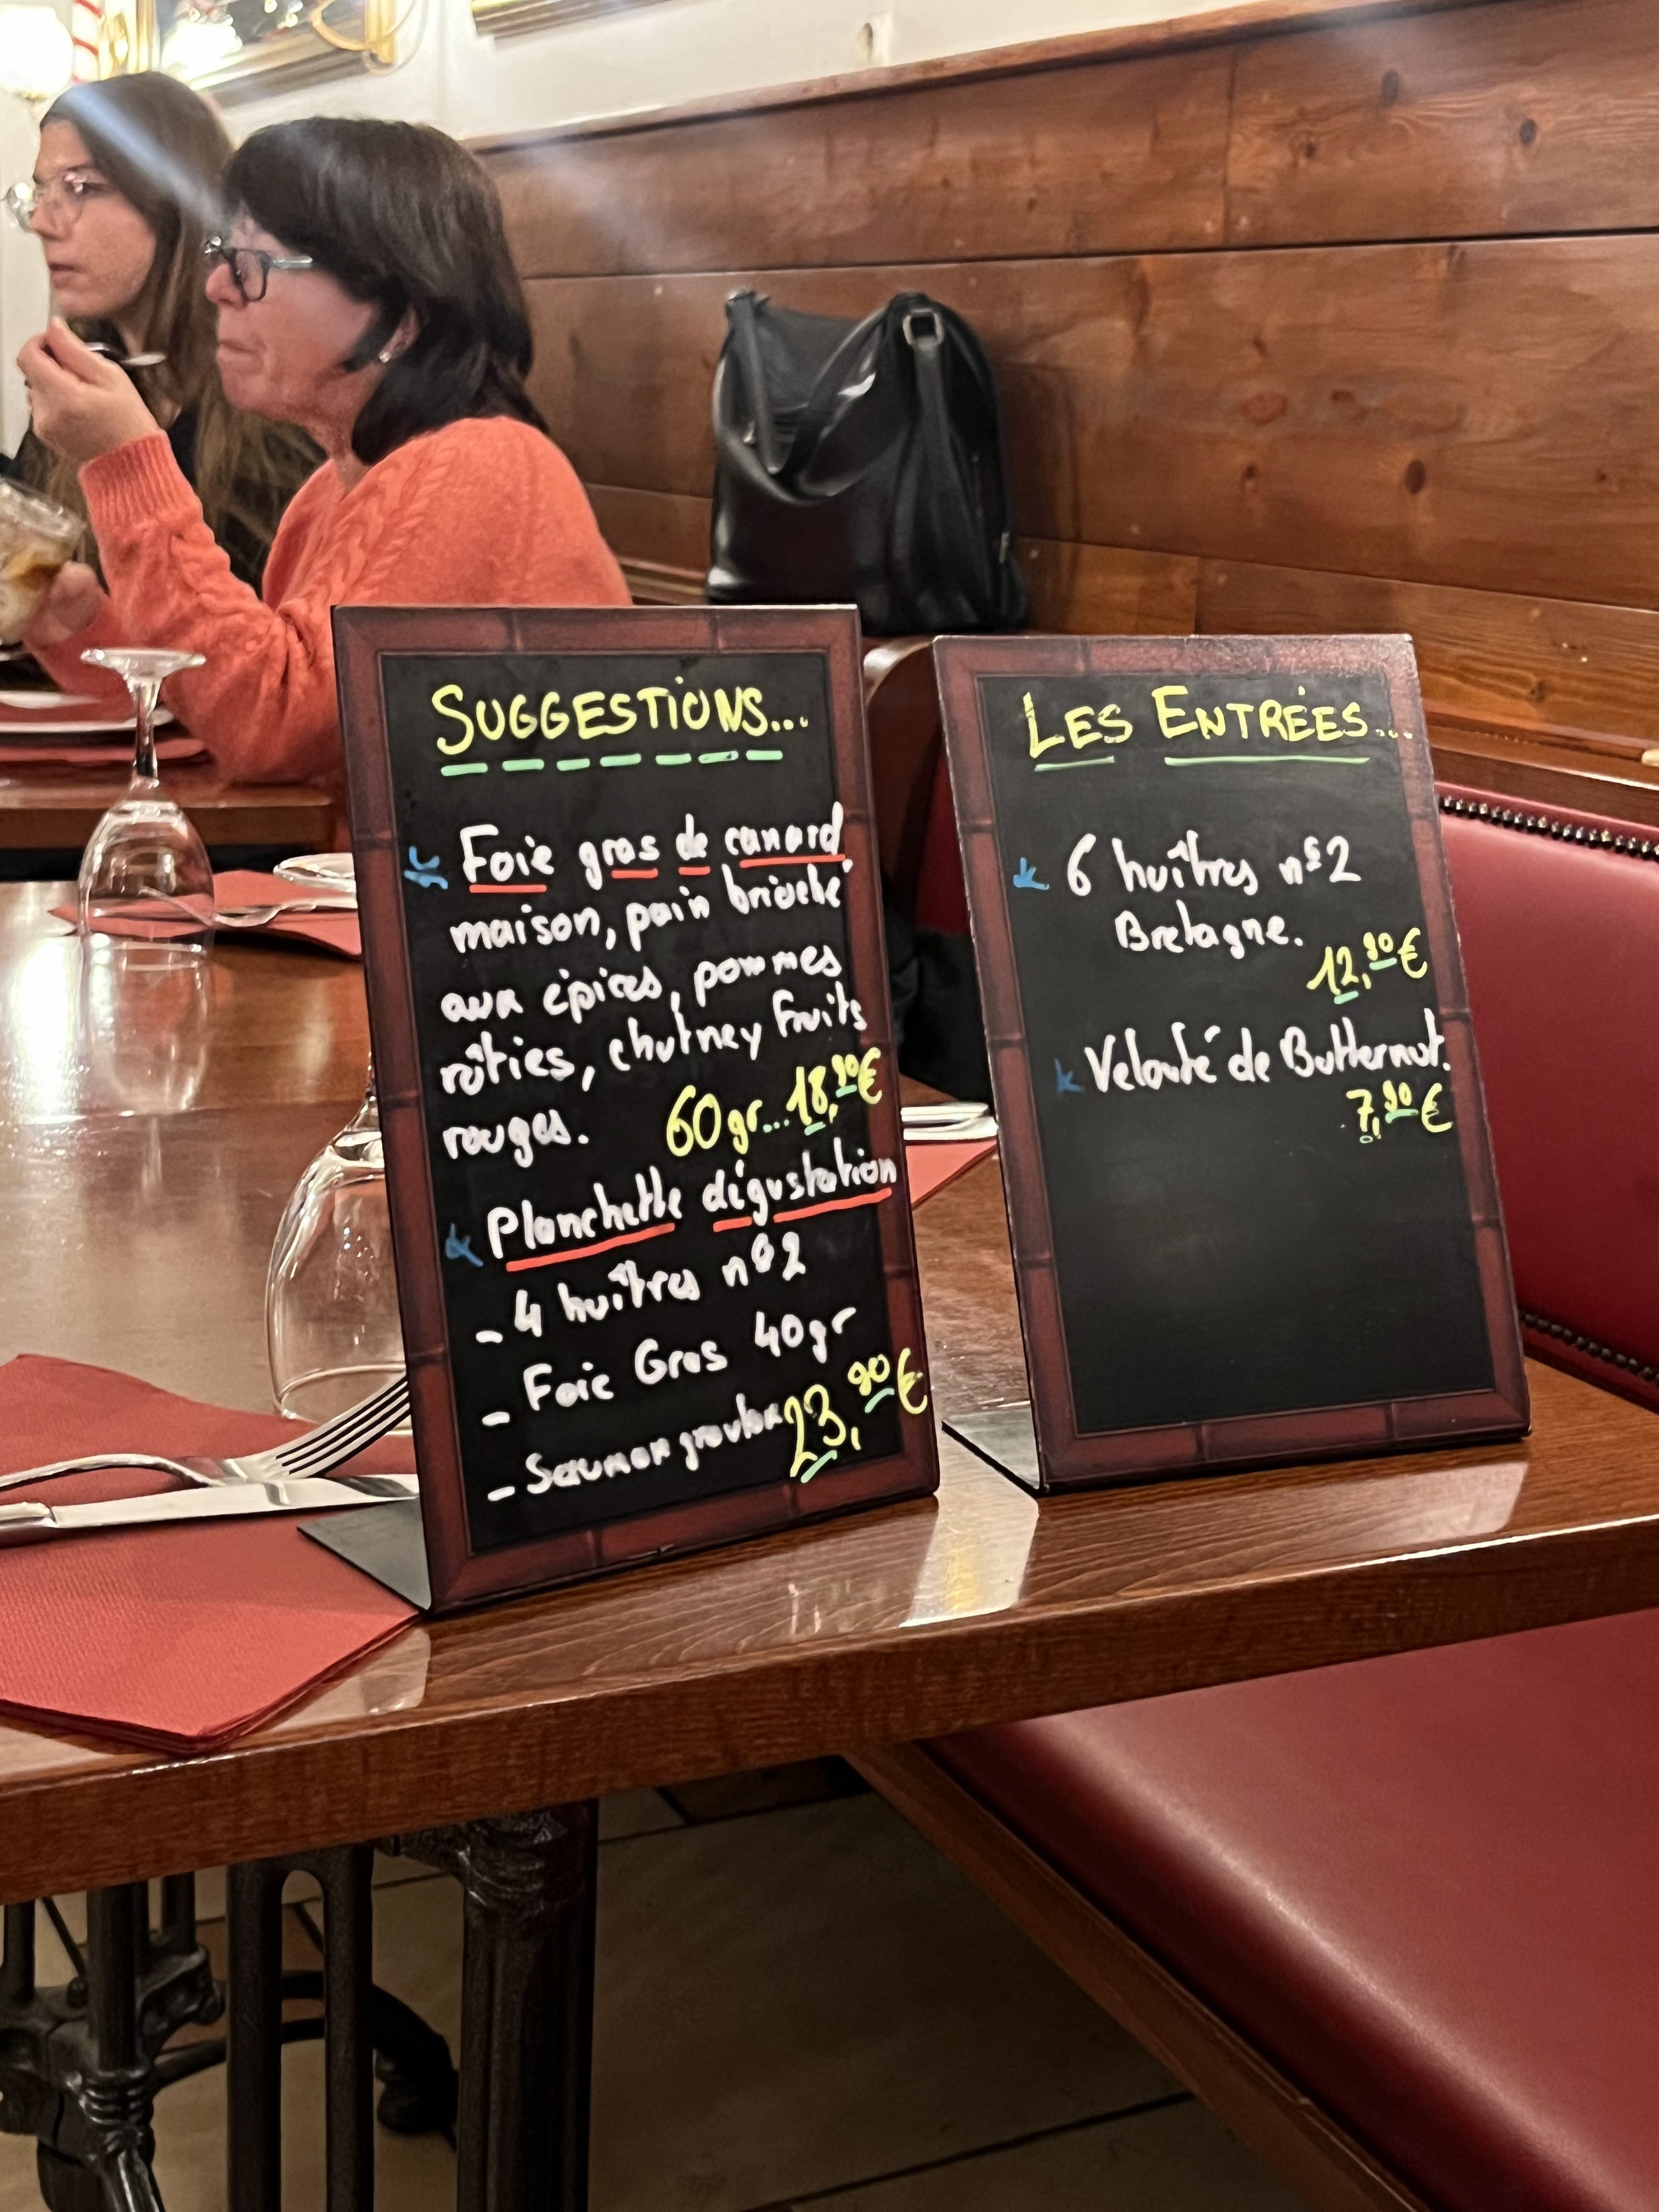 SUGGESTIONS...
Foie gras de canard
maison, pain brioché
aux épices, pommes
rôties, chutney fruits
rouges. 60gr...18,90€
Planchette dégustation
- 4 huîtres n°2
- Foie Gras 40gr
- Saumon gravlax 23,90€
LES ENTRÉES...
6 huîtres n°2
Bretagne.
12,90€
Velouté de Butternut.
7,90€